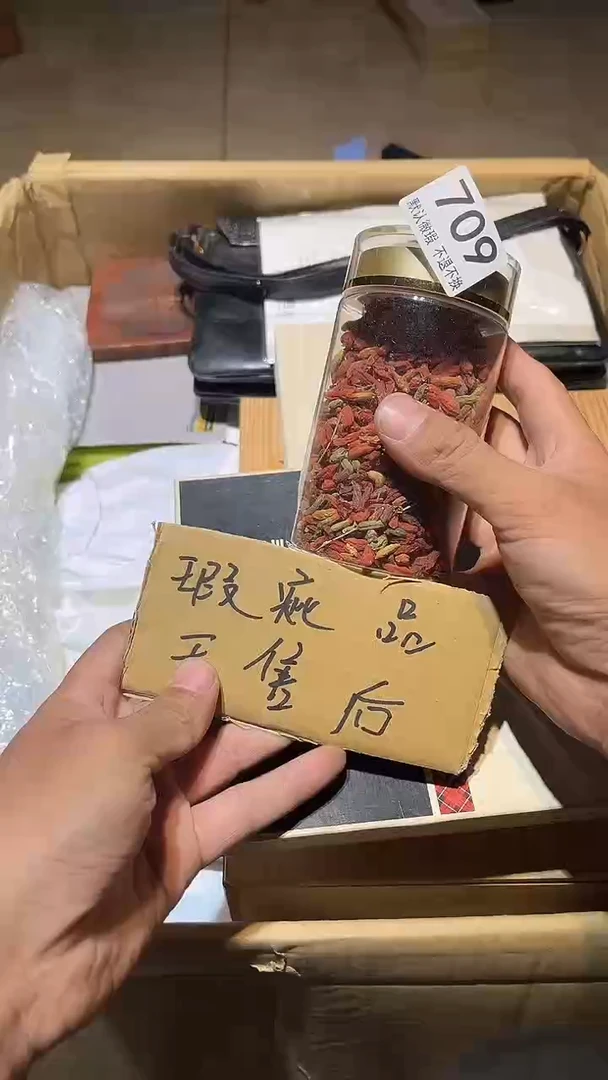 709
默认微瑕 不退不换
瑕疵 品
售后